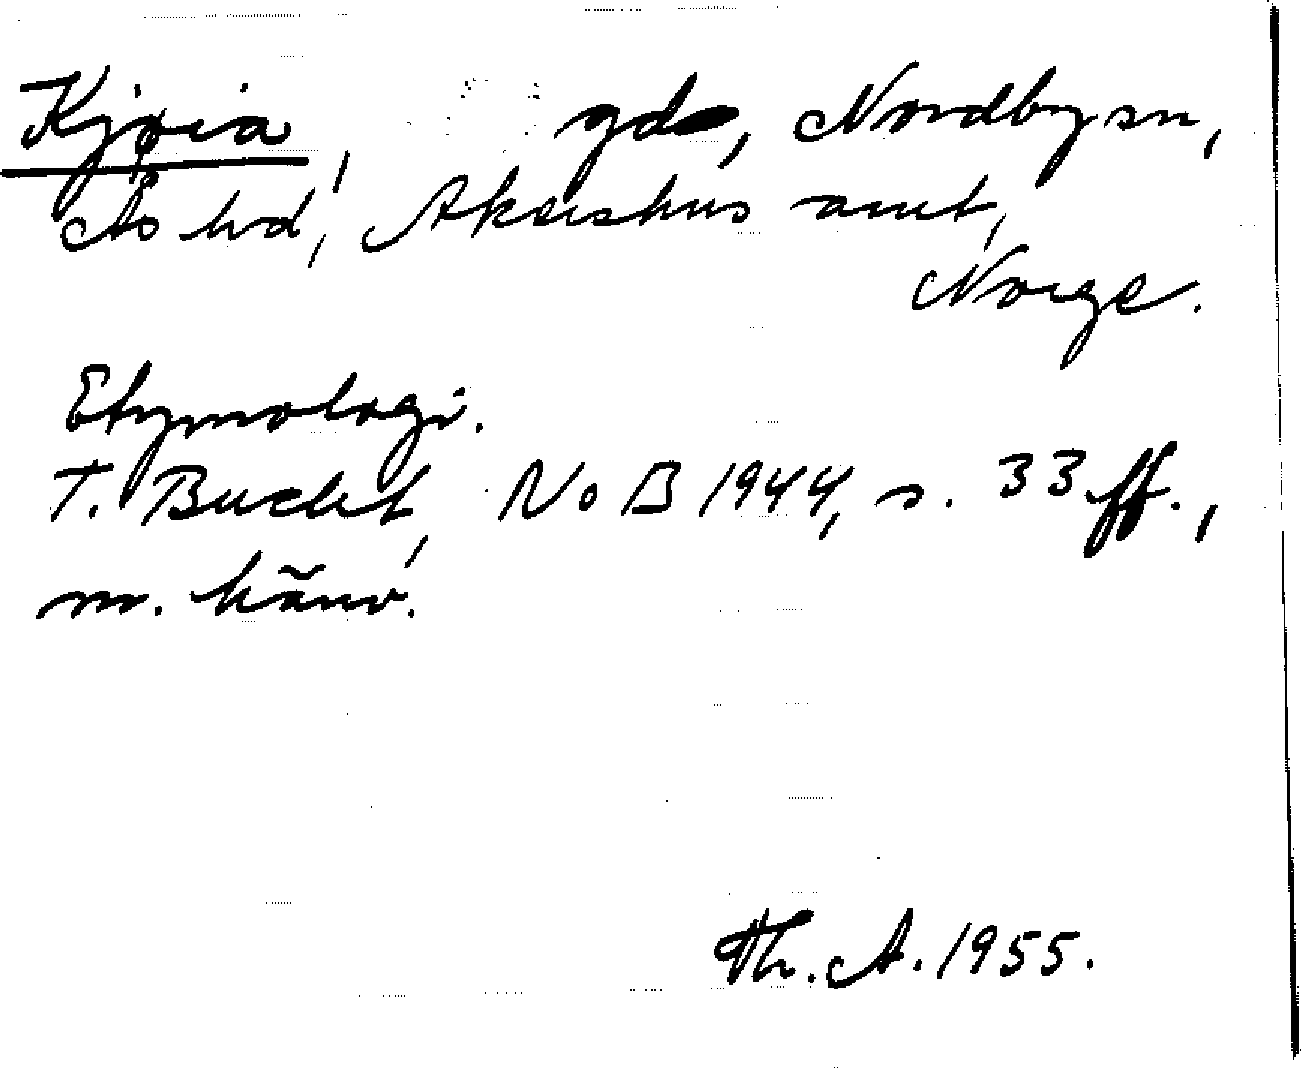 Kjøia, gd, Nordby sn,
Ås hd, Akershus amt,
Norge.
Etymologi.
T. Bucht, NoB 1944, s. 33 ff.,
m. hänv.
Th. A. 1955.